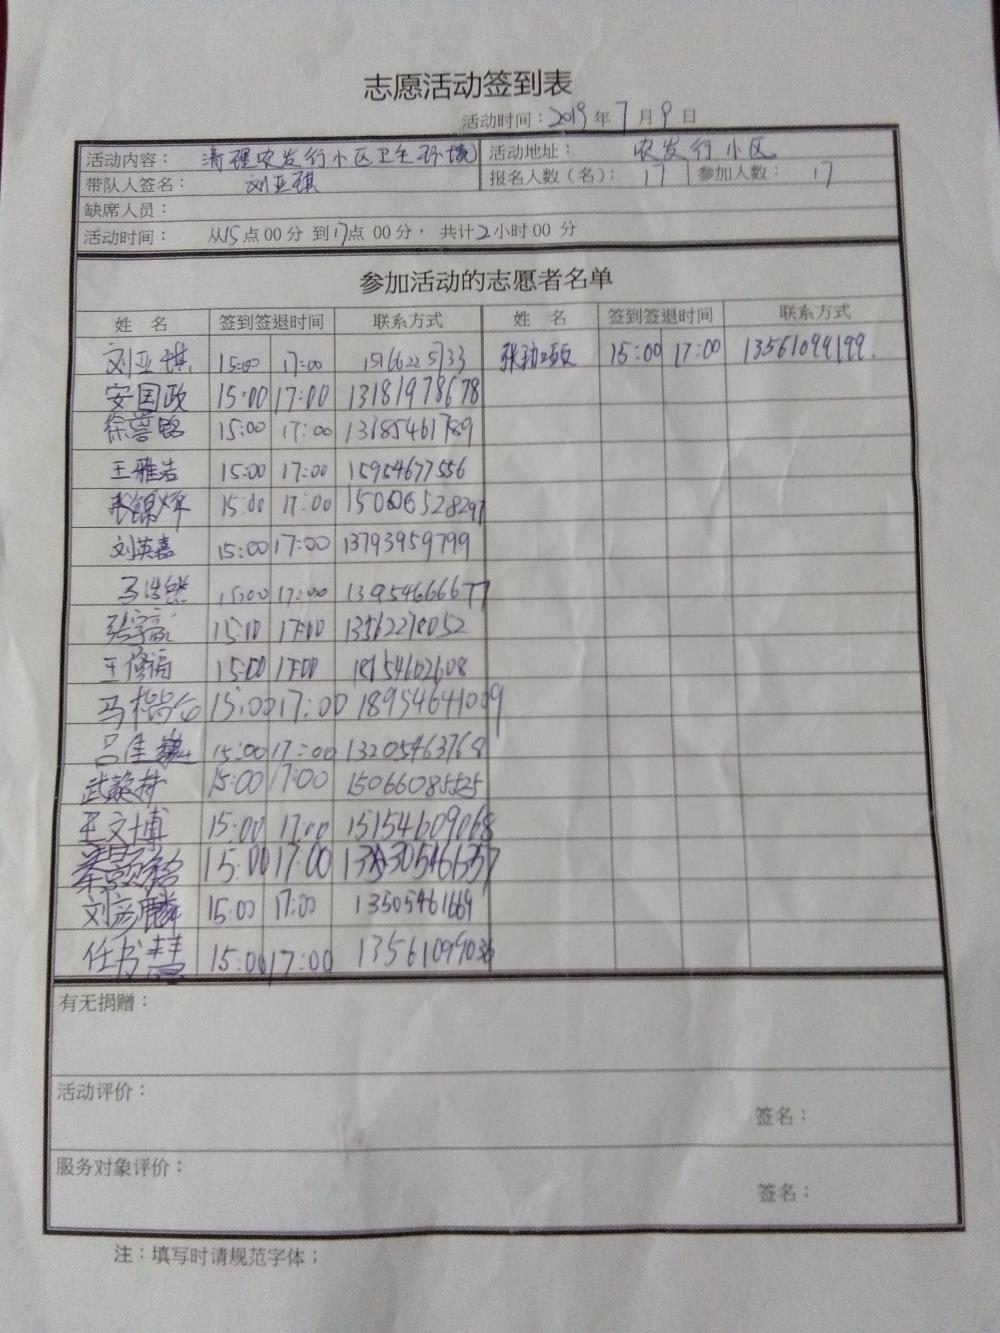 志愿活动签到表
活动时间：2019年7月9日
活动内容： 清理农发行小区卫生环境 活动地址： 农发行小区
带队人签名： 刘亚琪 报名人数（名）： 17 参加人数： 17
缺席人员：
活动时间： 从15点00分 到17点 00分， 共计2小时00 分
参加活动的志愿者名单
姓 名 签到签退时间 联系方式 姓 名 签到签退时间 联系方式
刘亚琪 15:00 17:00 15:00 17:00 13561099199.
安国政 15:00 17:00 13181978678
15:00 17:00 13685461789
王雅洁 15:00 17:00 15954677556
15:00 17:00
刘英嘉 15:00 17:00 13793959799
马浩然 15:00 17:00 13954666677
15:00 17:00
王修福 15:00 17:00
马楷 15:00 17:00 18954641009
吕佳 15:00 17:00 13205463768
武 15:00 17:00 15066085525
王文博 15:00 17:00 15154609068
秦 15:00 17:00
刘彦麟 15:00 17:00 13505461669
任书慧 15:00 17:00 13561099036
有无捐赠：
活动评价：
签名：
服务对象评价：
签名：
注：填写时请规范字体；